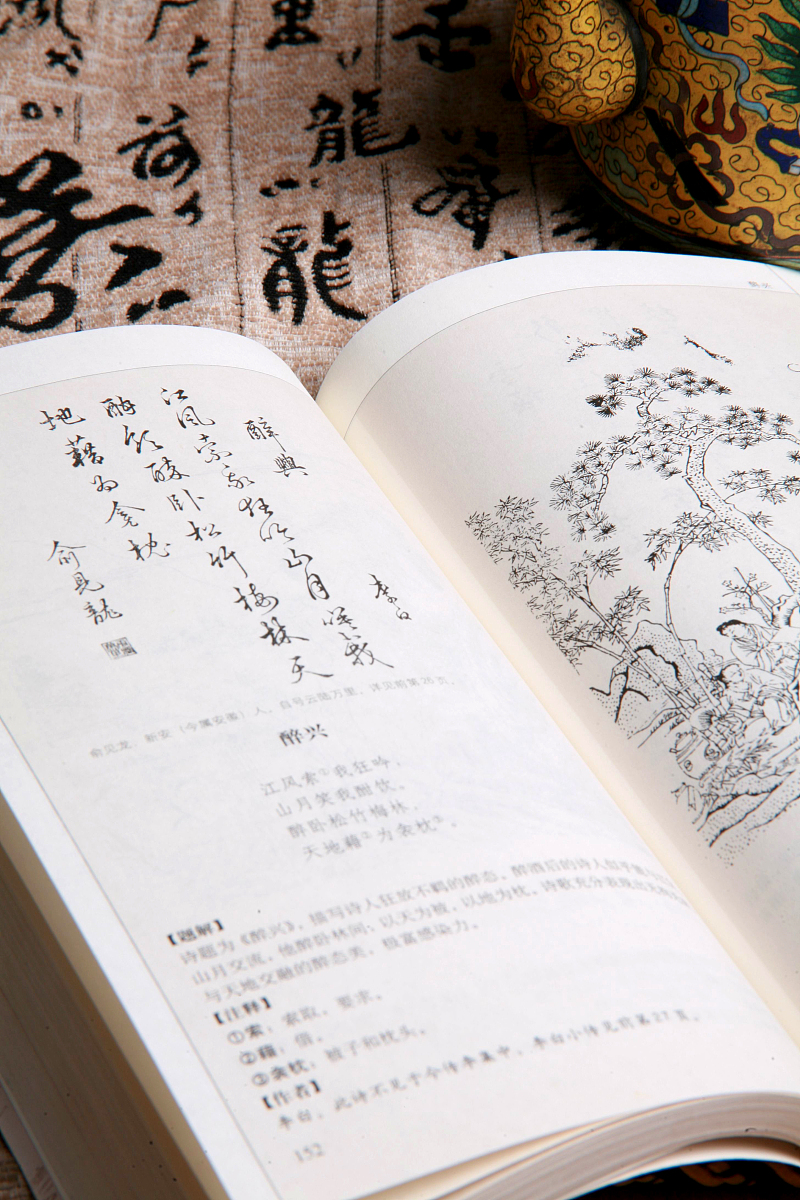 龍
龍
醉興 李白
江風索我狂吟山月笑我
酣飲醉臥松竹梅林天
地藉為衾枕
俞見龍
俞见龙：新安（今属安徽）人，自号云陆万里，详见前第26页。
醉兴
江风索①我狂吟，
山月笑我酣饮。
醉卧松竹梅林，
天地藉②为衾枕③。
【题解】
诗题为《醉兴》，描写诗人狂放不羁的醉态，醉酒后的诗人似乎
山月交流，他醉卧林间；以天为被，以地为枕，诗歌充分表现出
与天地交融的醉态美，极富感染力。
【注释】
①索：索取，要求。
②藉：借。
③衾枕：被子和枕头。
【作者】
李白，此诗不见于今传李集中，李白小传见前第27页。
152